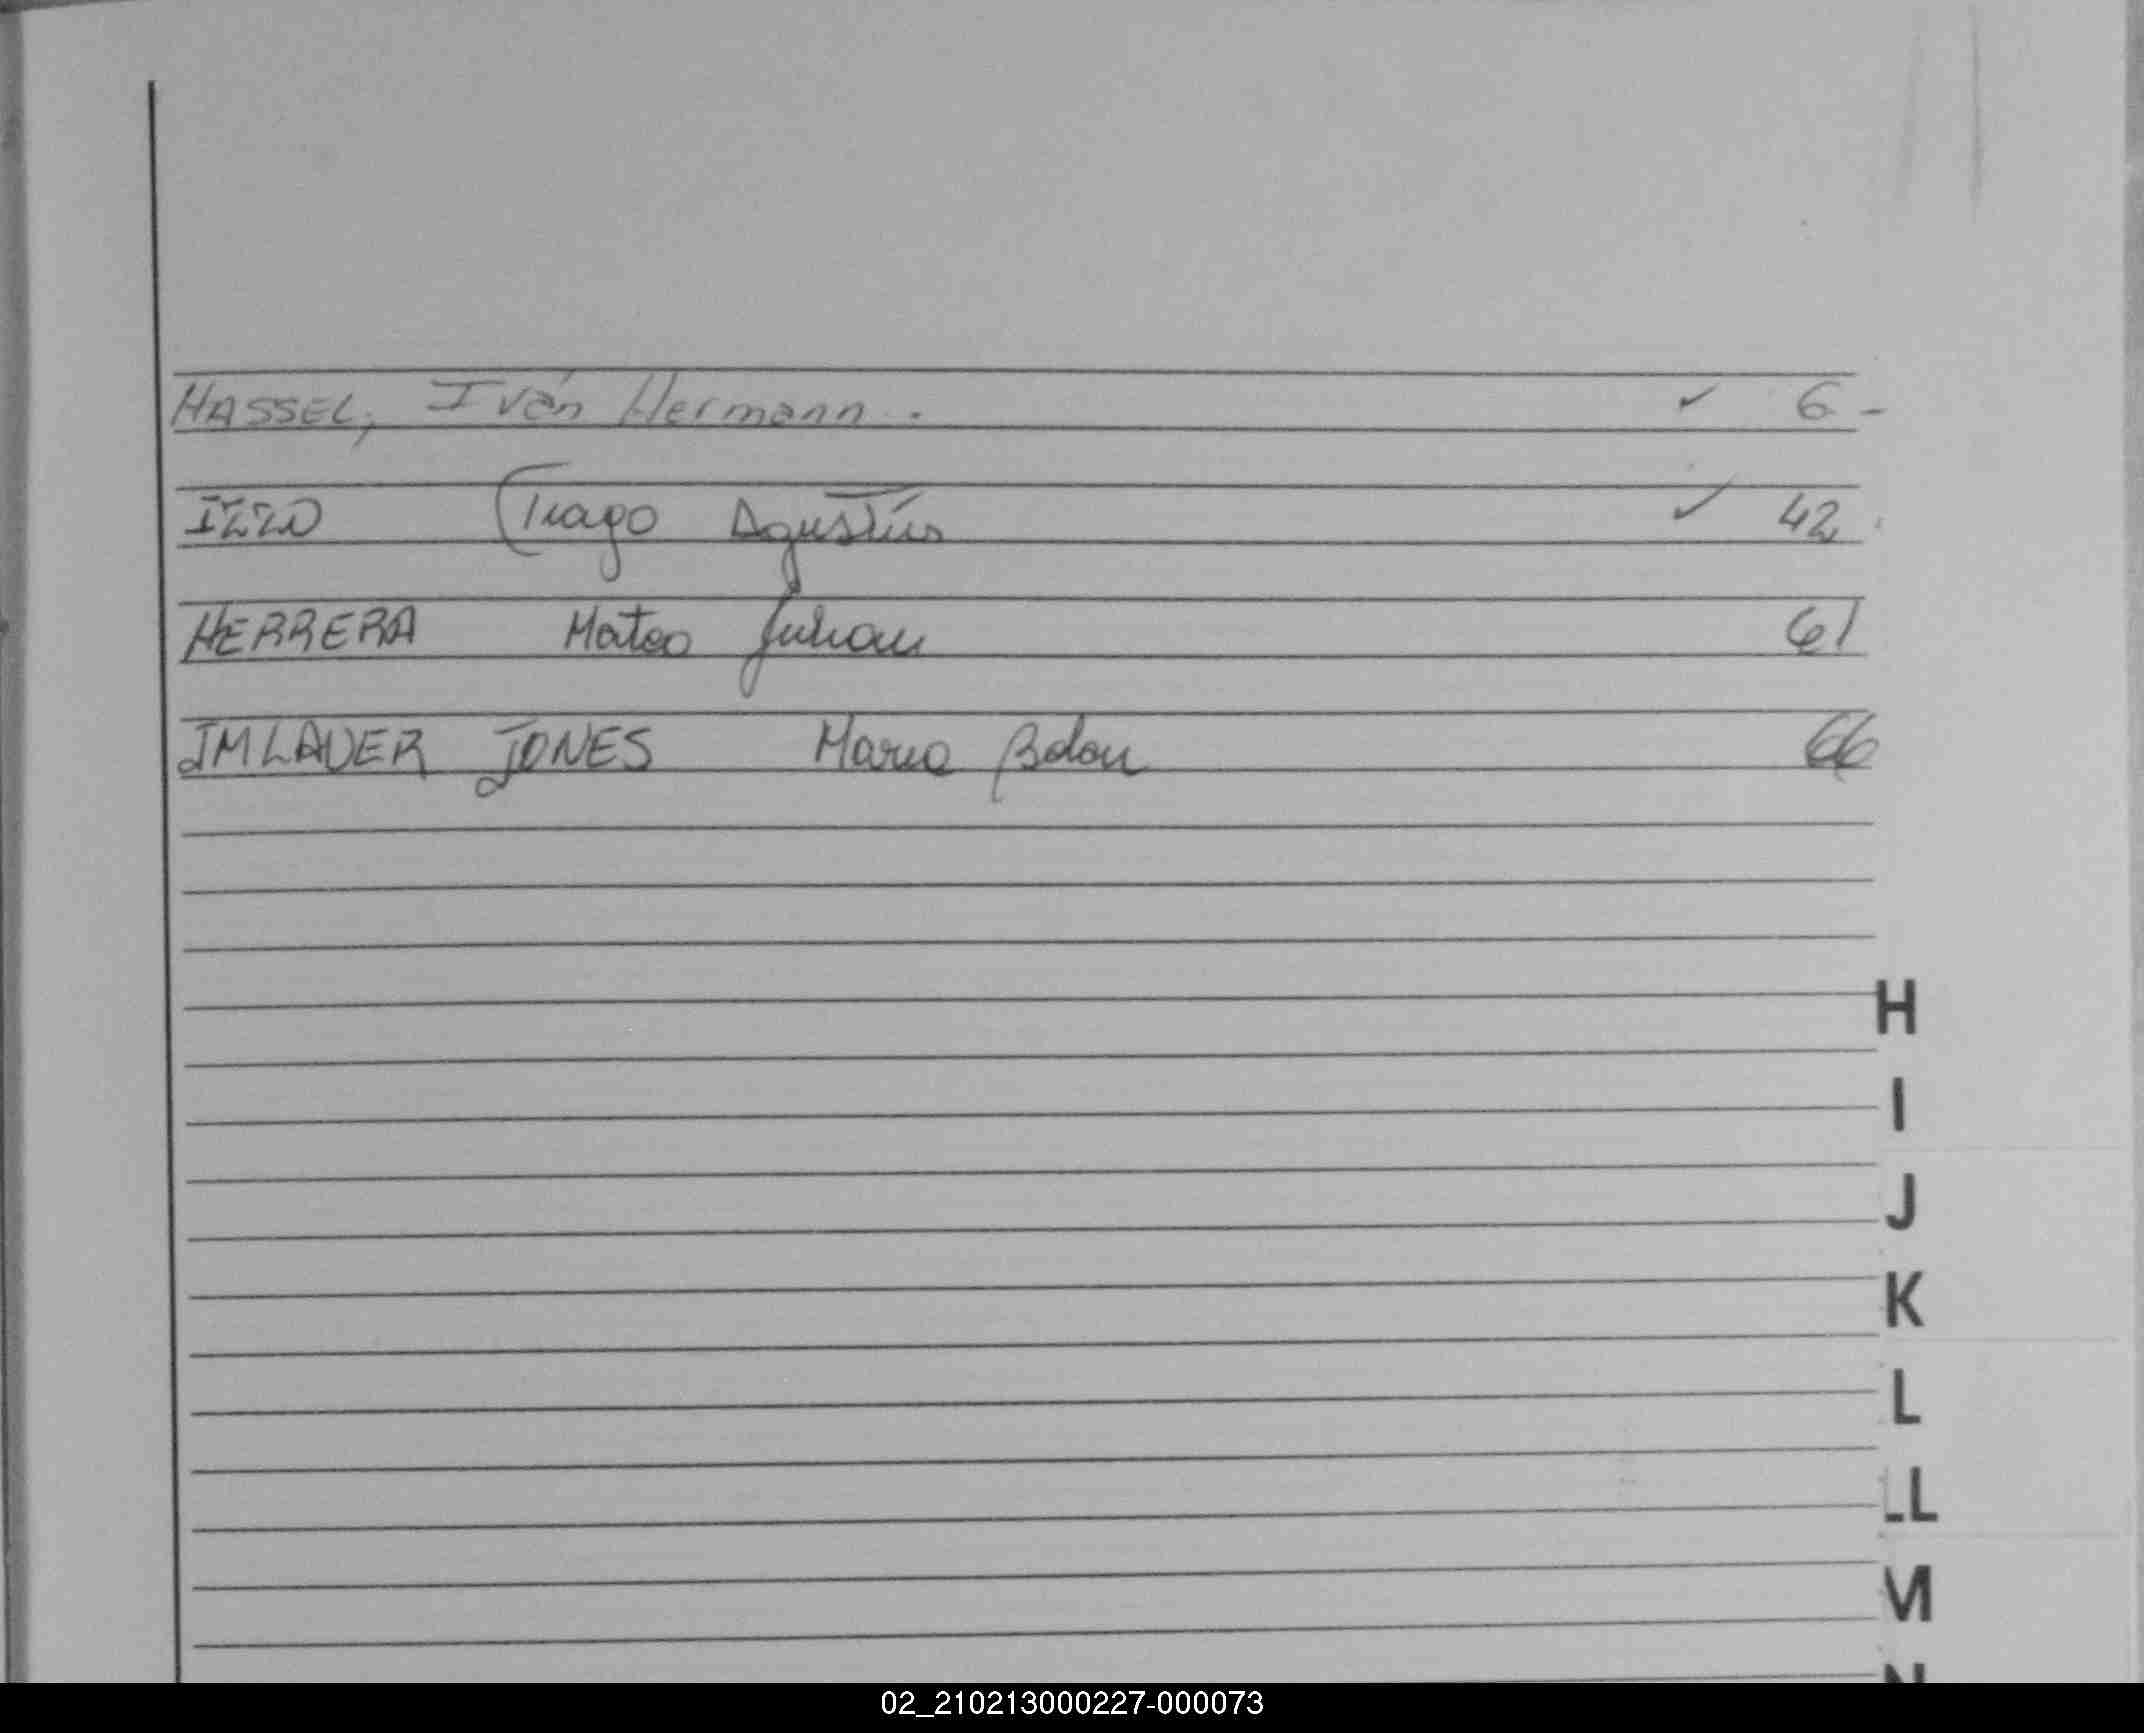 HASSEL, Iván Hermann. ✓ 6-
IZZO Tiago Agustín ✓ 42
HERRERA Mateo Julian 61
IMLAUER JONES Maria Belen 66
H
I
J
K
L
LL
M
N
02_210213000227-000073